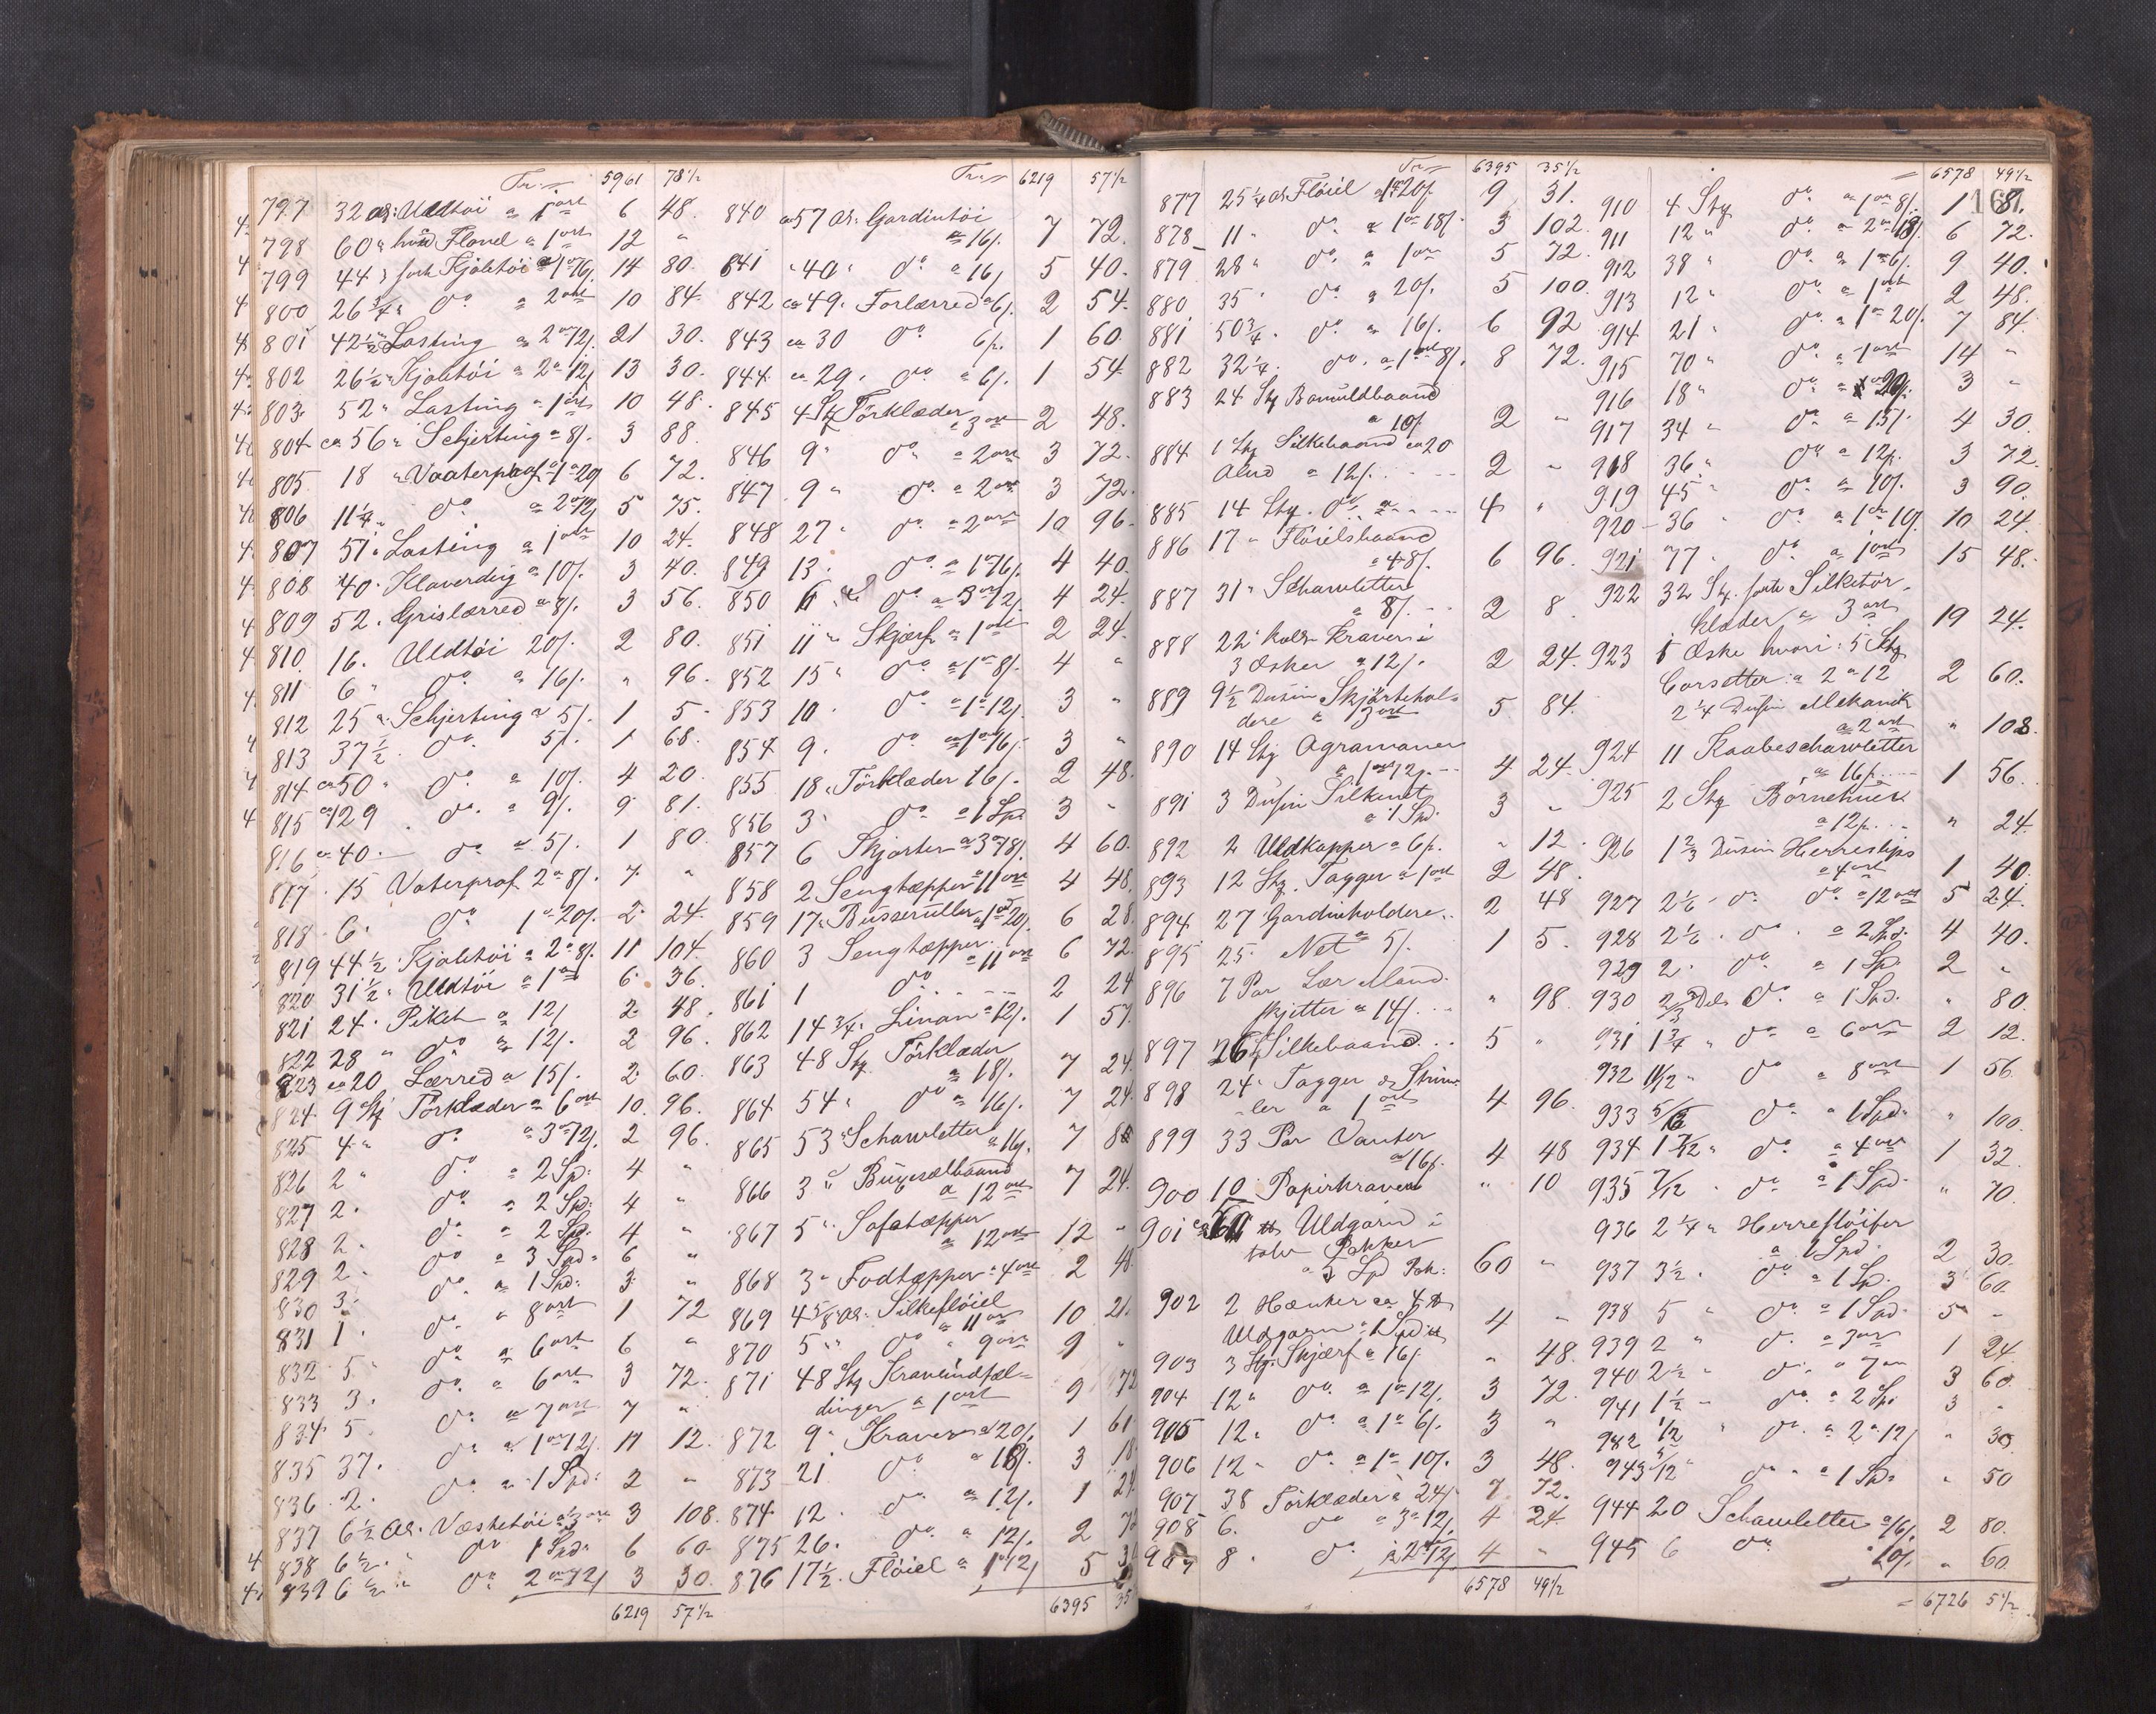 Tr. 5961 78½
797 32 al: Uldtöi a 1 ort 6 48.
798 60 " hvid Flonel a 1 ort 12 "
799 44 " sort Kjoletöi a 1 ort 16/ 14 80.
800 26¾ " do a 2 ort 10 84.
801 42½ " Lasting a 2 ort 12/. 21 30.
802 26½ " Kjoletöi a 2 ort 12/ 13 30.
803 52 " Lasting a 1 ort 10 48.
804 ca 56 " Schjerting a 8/. 3 88
805 18 " Vaaterprof a 1 ort 20 6 72.
806 11¼ " do a 2 ort 12/ 5 75.
807 51 " Lasting a 1 ort 10 24.
808 40 " Klaverdug a 10/. 3 40.
809 52 . Grislærred a 8/. 3 56.
810 16. Uldtöi 20/. 2 80.
811 6 " do a 16/. " 96.
812 25 " Schjerting a 5/. 1 5.
813 37½ . do. 5/. 1 68.
814 ca 50 " do a 10/. 4 20.
815 ca 129 . do. a 9/. 9 81.
816 ca 40. do a 5/. 1 80.
817 . 15 Vaterprof 2 a 8/. 7. "
818 . 6. do 1 a 20/. 2 24.
819 44½ . Kjoletöi a 2 a 8/. 11 104.
820 31½ " Uldtöi a 1 ort 6 36.
821 24 . Piket a 12/ 2 48.
822 28 " do a 12/. 2 96.
823 ca 20 Lærred a 15/. 2 60.
824 9 Stk Törklæder a 6 ort 10. 96.
825 4 " do a 3 ort 12/. 2 96.
826 2 " do. a 2 Sp: 4 "
827 2. do a 2 Spd: 4 "
828 2. do. a 2 Sp. 4 "
829 2. do a 3 Spd. 6 "
830 3. do. a 1 Spd: 3 "
831 1. do. a 8 ort 1 72
832 . 5. do. a 6 ort 6 "
833 3. do. a 6 ort 3 72.
834 . 5. do a 7 ort 7 "
835 37. do a 1 ort 12/. 11 12.
836 . 2. do a 1 Spd: 2 "
837 6½ al. Væsketöi a 3 ort 3 108.
838 6½ . " do 1 Spd. 6 60.
839 6½ . " do 2 ort 12/ 3 30.
6219 57½
Tr. 6219 57½
840 ca 57 al. Gardintöi
a 16/. 7 72.
841 " 40 " do a 16/ 5 40.
842 ca 49 . Forlærred a 6/. 2 54.
843 ca 30 do 6/. 1 60.
844 ca 29 . do a 6/. 1 54
845 4 Stk Törklæder
a 3 ort 2 48.
846 9 " do a 2 ort 3 72.
847 . 9 " do. a 2 ort 3 72.
848 27 " do. a 2 ort 10 96.
849 13. do. a 1 ort 16/. 4 40.
850 6 " do a 3 ort 12/. 4 24.
851 11 " Skjærf a 1 ort 2 24.
852 15 " do a 1 ort 8/. 4 "
853 10. do a 1 a 12/ 3 "
854 9. do a 1 ort 16/. 3 "
855 18 " Törklæder 16/. 2 48.
856 3. do a 1 Spd 3 "
857 6 Skjorter a 3 ort 18/. 4 60.
858 2 Sengtæpper a 11 ort 4 48.
859 17 " Busseruller a 1 ort 20/. 6 28.
860 3 Sengtæpper.
a 11 ort 6 72.
861 1 do . . . 2 24
862 14¾ . Linon a 12/. 1 57.
863 48 Stk Törklæder
a 18/. 7 24.
864 54 " do a 16/. 7 24.
865 53 " Schawletter
a 16/. 7 8
866 3 "
a 12 ort 7 24.
867 5 " Sofatæpper
a 12 ort 12 "
868 3 " Fodtæpper a 4 ort 2 48.
869 4 5/8 al. Silkeflöiel
a 11 ort 10 21.
870 5 " do a 9 ort 9 "
871 48 Stk Kraveindfæl=
dinger a 1 ort 9 72
872 9 " Kraver a 20/. 1 61
873 21 do a 18/. 3 18
874 12. do. a 12/. 1 24
875 26. do. a 12/. 2
876 17½ . Flöiel a 1 ort 12/ 5
6395 35
Tr. 6395 35½
877 25¼ al. Flöiel a 1 ort 20/. 9 31.
878 11 " do a 1 ort 18/. 3 102.
879 28 " do. a 1 ort 5 72.
880 35 " do. a 20/. 5 100.
881 50¾ . do. a 16/. 6 92
882 32¼ . do. a 1 ort 8/. 8 72.
883 24 Stk Bomuldbaand
a 10/. 2 "
884 1 Stk Silkebaand ca 20
Alnd a 12/. . . . 2 "
885 14 Stk. do a . . . 4 "
886 17 " Flöielsbaand
a 48/. 6 96.
887 31 " Schawletter
a 8/. . . 2 8.
888 22 " Kraver i
3 Æsker a 12/. 2 24.
889 9½ Dusin Skjörtehol=
dere a 3 ort 5 84.
890 14 Stk Agramaner
a 1 ort 12/. . . 4 24.
891 3 Dusin Silkenet
a 1 Spd. 3 "
892 2 Uldkapper a 6/. " 12.
893 12 Stk. Tagger a 1 ort 2 48.
894 27 Gardinholdere . . 2 48
895 25. Net a 5/. 1 5.
896 7 Par Lær Mand.
skjetter a 14/. . . " 98.
897 26 Stk Silkebaand . . . 5 "
898 24 " Tagger & Strim=
ler a 1 ort 4 96.
899 33 Par Vanter
a 16/. 4 48
900 10 Papirkraver " 10
901 ca 60 ℔ Uldgarn i
tolv Pakker
a 5 Spd Pak: 60 "
902 2 Hanker ca 4 ℔
Uldgarn a 1 Spd ℔ 4 "
903 3 Stk. Skjærf a 16/. " 48.
904 12 " do. a 1 a 12/. 3 72.
905 12 " do a 1 a 6/. 3 "
906 12 " do a 1 a 10/. 3 48.
907 38 Törklæder a 24/. 7 72.
908 6. do a 3 a 12/. 4 24.
909 8 " do. a 2 ort 12/ 4 "
6578 49½
167
6578 49½
910 4 Stk do a 1 ort 8/. 1 8.
911 12 " do. a 2 ort 18/. 6 72.
912 38 " do. a 1 ort 6/. 9 40.
913 12 " do. a 1 ort 2 48.
914 21 " do. a 1 a 20/. 7 84.
915 70 " do a 1 ort 14 "
916 18 " do a 20/. 3 "
917 34 " do a 15/. 4 30.
918 36 " do a 12/. 3 72.
919 45 " do a 10/. 3 90.
920 36 " do a 1 ort 10/. 10 24.
921 77 . do. a 1 ort 15 48.
922 32 Stk. sorte Silketör=
klæder a 3 ort 19 24.
923 1 Æske hvori: 5 Stk
Corsetter a 2 a 12 2 60.
2¼ Dusin Mekanik
a 2 ort " 108.
924 11 Kaabeschawletter
a 16/. . . . 1 56.
925 2 Stk Börnehuer
a 12/. . . " 24.
926 1⅔ Dusin Herreslips
a 4 ort 1 40.
927 2 1/6 . do do a 12 ort 5 24.
928 2 1/6 . do. a 2 Spd. 4 40.
929 2. do. a 1 Sp. 2 "
930 2/3 do. a 1 Spd. " 80.
931 1¾ " do a 6 ort 2 12.
932 11/12 " do a 8 ort 1 56.
933 5/6 do. a 1 Spd. " 100.
934 1 7/12 " do. a 4 ort 1 32.
935 7/12 . do a 1 Spd. " 70.
936 2¼ " Herreslöifer
a 1 Spd. 2 30.
937 3½ . do a 1 Sp. 3 60.
938 5 " do. a 1 Spd. 5 "
939 2 " do a 3 ort 1 24.
940 2½ " do. a 7 ort 3 60.
941 1½ " do. a 2 Sp. 3 "
982 1/2 " do. a 2 a 12/ " 30
943 5/12 " do. a 1 Spd. " 50
944 20 Schawletter a 16/. 2 80.
945 6 do. 20/. " 60.
6726 5½